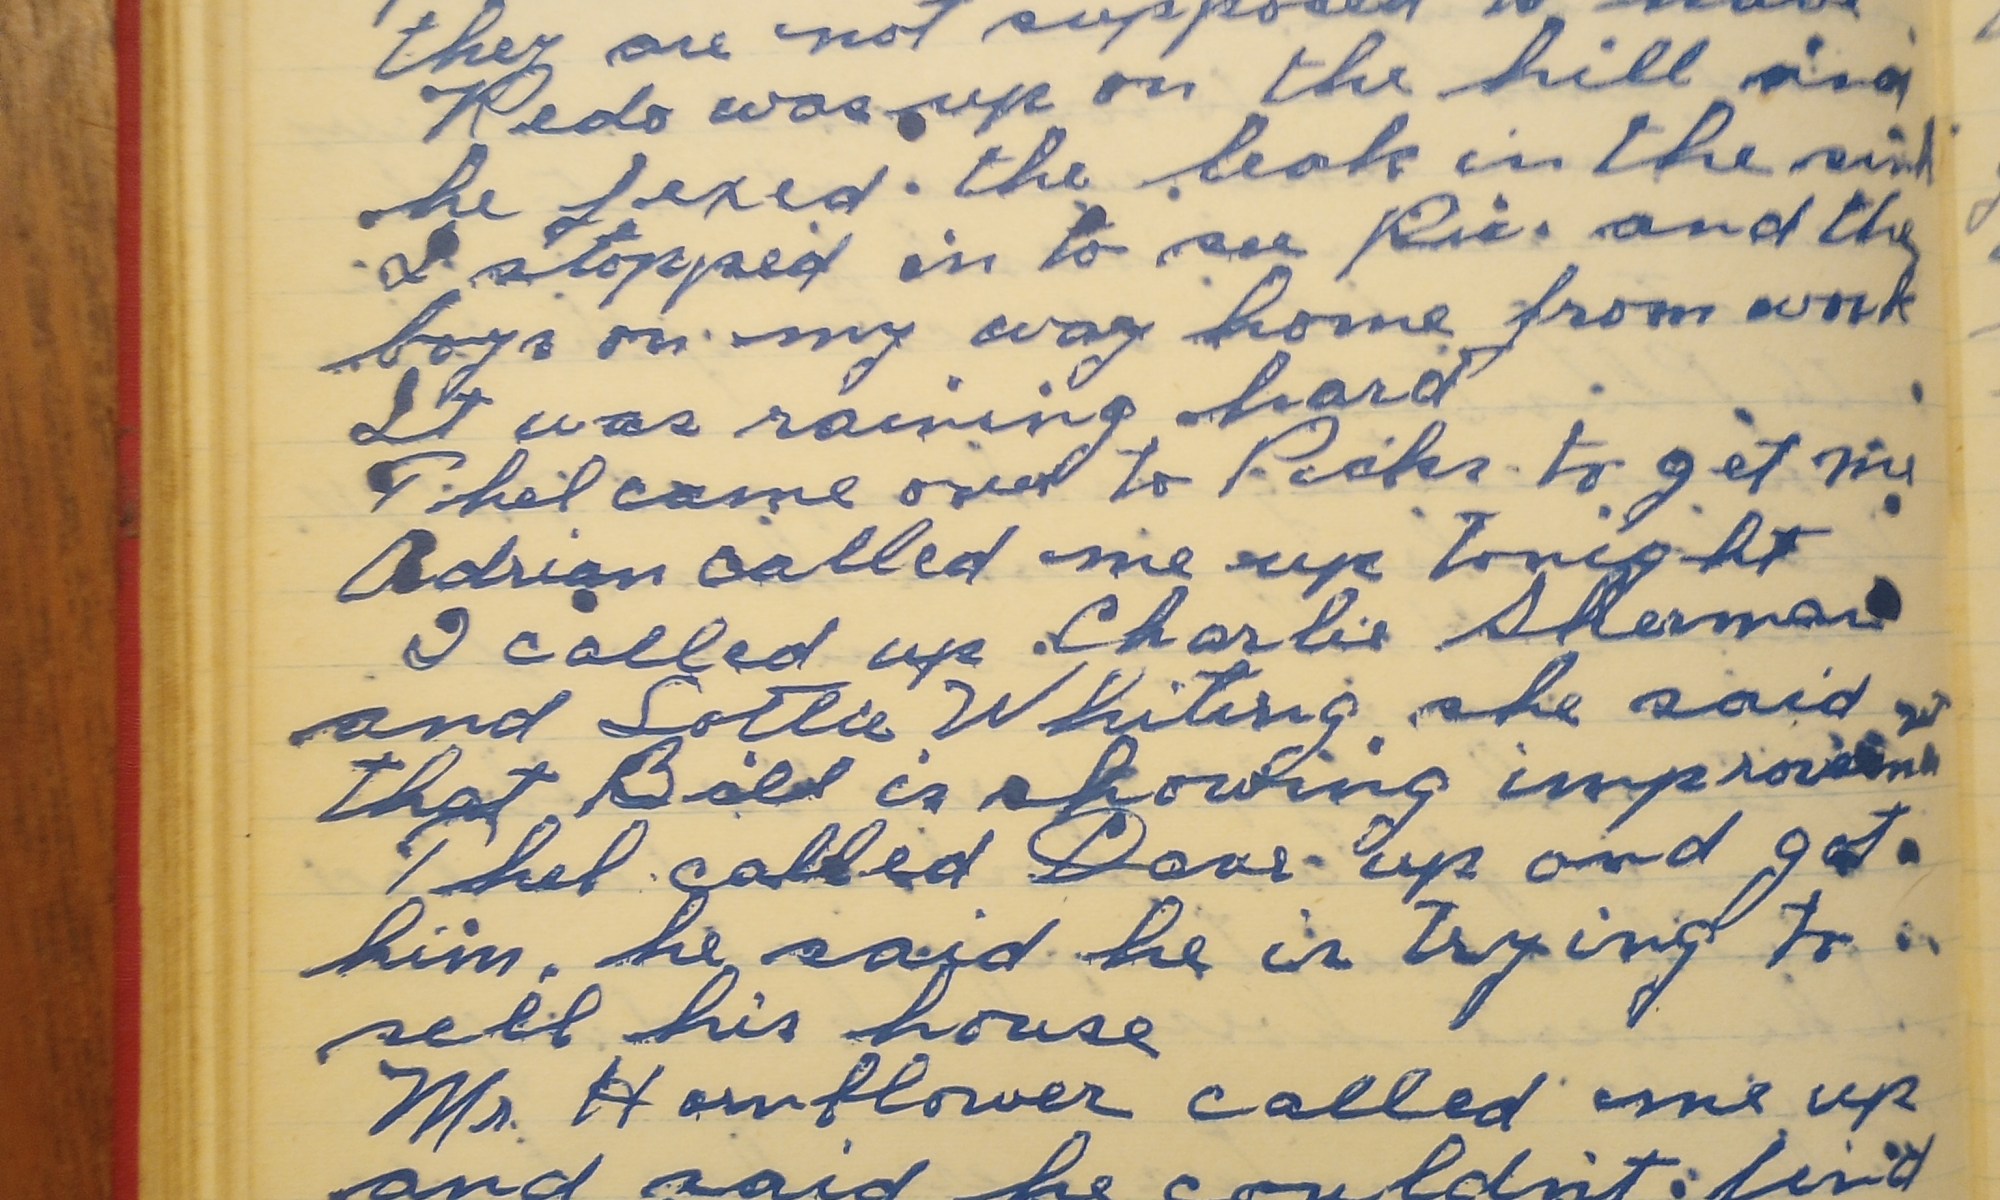 they are not supposed to have
Redo was up on the hill and
he fexed the leak in the sink
I stopped in to see Ric. and the
boys on my way home from work
It was raining hard
Thel came over to Ricks to get me
Adrian called me up tonight
I called up Charlie Sherman
and Lottie Whiting she said
that Bill is showing improvement
Thel called Dave up and got
him, he said he is trying to
sell his house
Mr. Hornflower called me up
and said he couldn't find